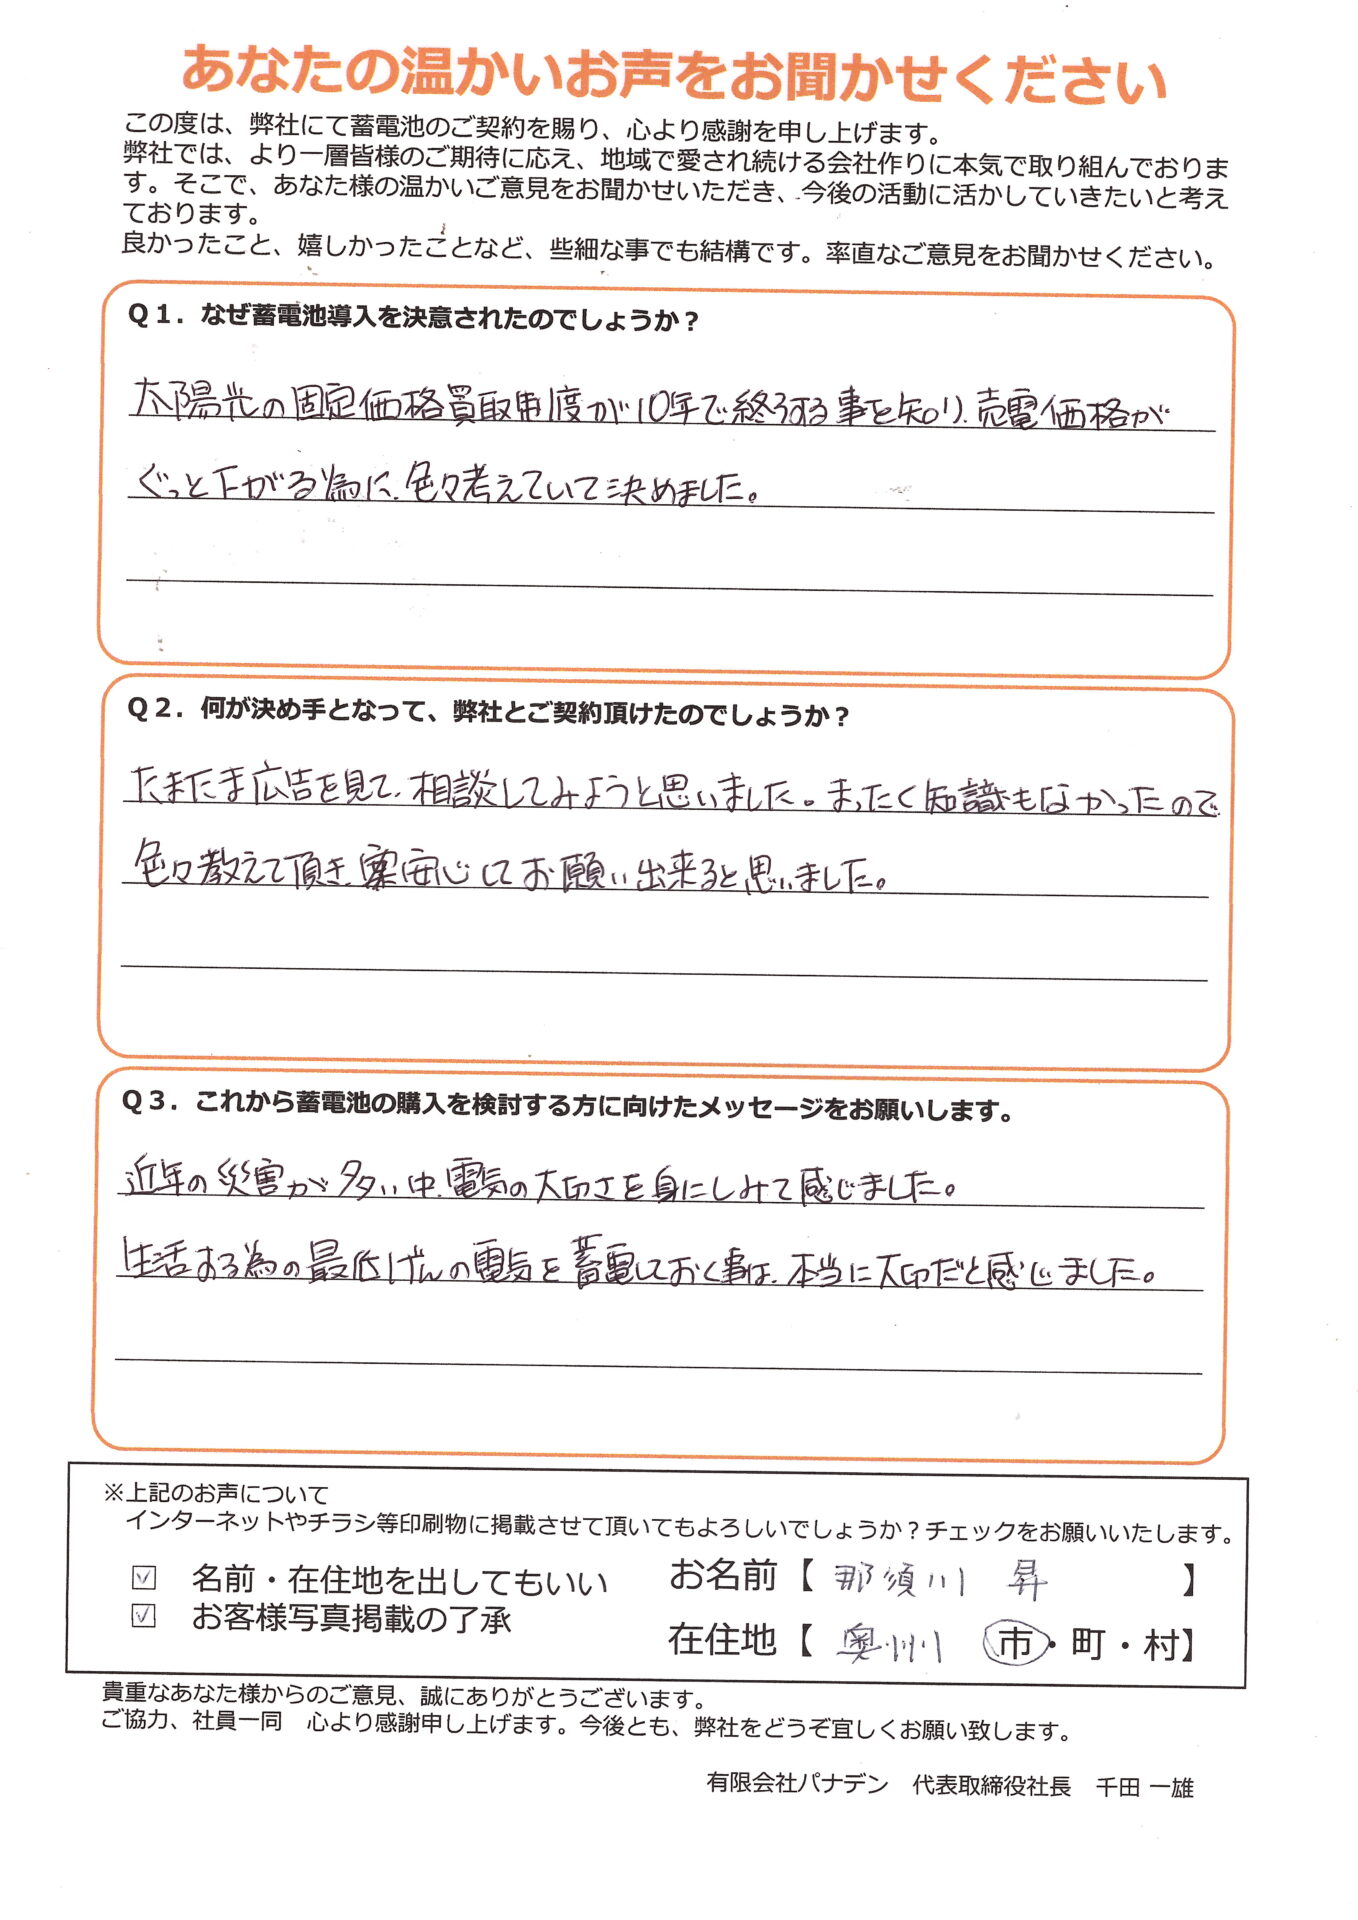 あなたの温かいお声をお聞かせください
この度は、弊社にて蓄電池のご契約を賜り、心より感謝を申し上げます。
弊社では、より一層皆様のご期待に応え、地域で愛され続ける会社作りに本気で取り組んでおりま
す。そこで、あなた様の温かいご意見をお聞かせいただき、今後の活動に活かしていきたいと考え
ております。
良かったこと、嬉しかったことなど、些細な事でも結構です。率直なご意見をお聞かせください。
Q1．なぜ蓄電池導入を決意されたのでしょうか？
太陽光の固定価格買取制度が10年で終了する事を知り、売電価格が
ぐっと下がる為に、色々考えていて決めました。
Q2．何が決め手となって、弊社とご契約頂けたのでしょうか？
たまたま広告を見て、相談してみようと思いました。まったく知識もなかったので
色々教えて頂き、安心してお願い出来ると思いました。
Q3．これから蓄電池の購入を検討する方に向けたメッセージをお願いします。
近年の災害が多い中、電気の大切さを身にしみて感じました。
生活する為の最低げんの電気を蓄電しておく事は、本当に大切だと感じました。
※上記のお声について
インターネットやチラシ等印刷物に掲載させて頂いてもよろしいでしょうか？チェックをお願いいたします。
☑ 名前・在住地を出してもいい お名前【 那須川 昇 】
☑ お客様写真掲載の了承
在住地【 奥州 市・町・村】
貴重なあなた様からのご意見、誠にありがとうございます。
ご協力、社員一同 心より感謝申し上げます。今後とも、弊社をどうぞ宜しくお願い致します。
有限会社パナデン 代表取締役社長 千田 一雄